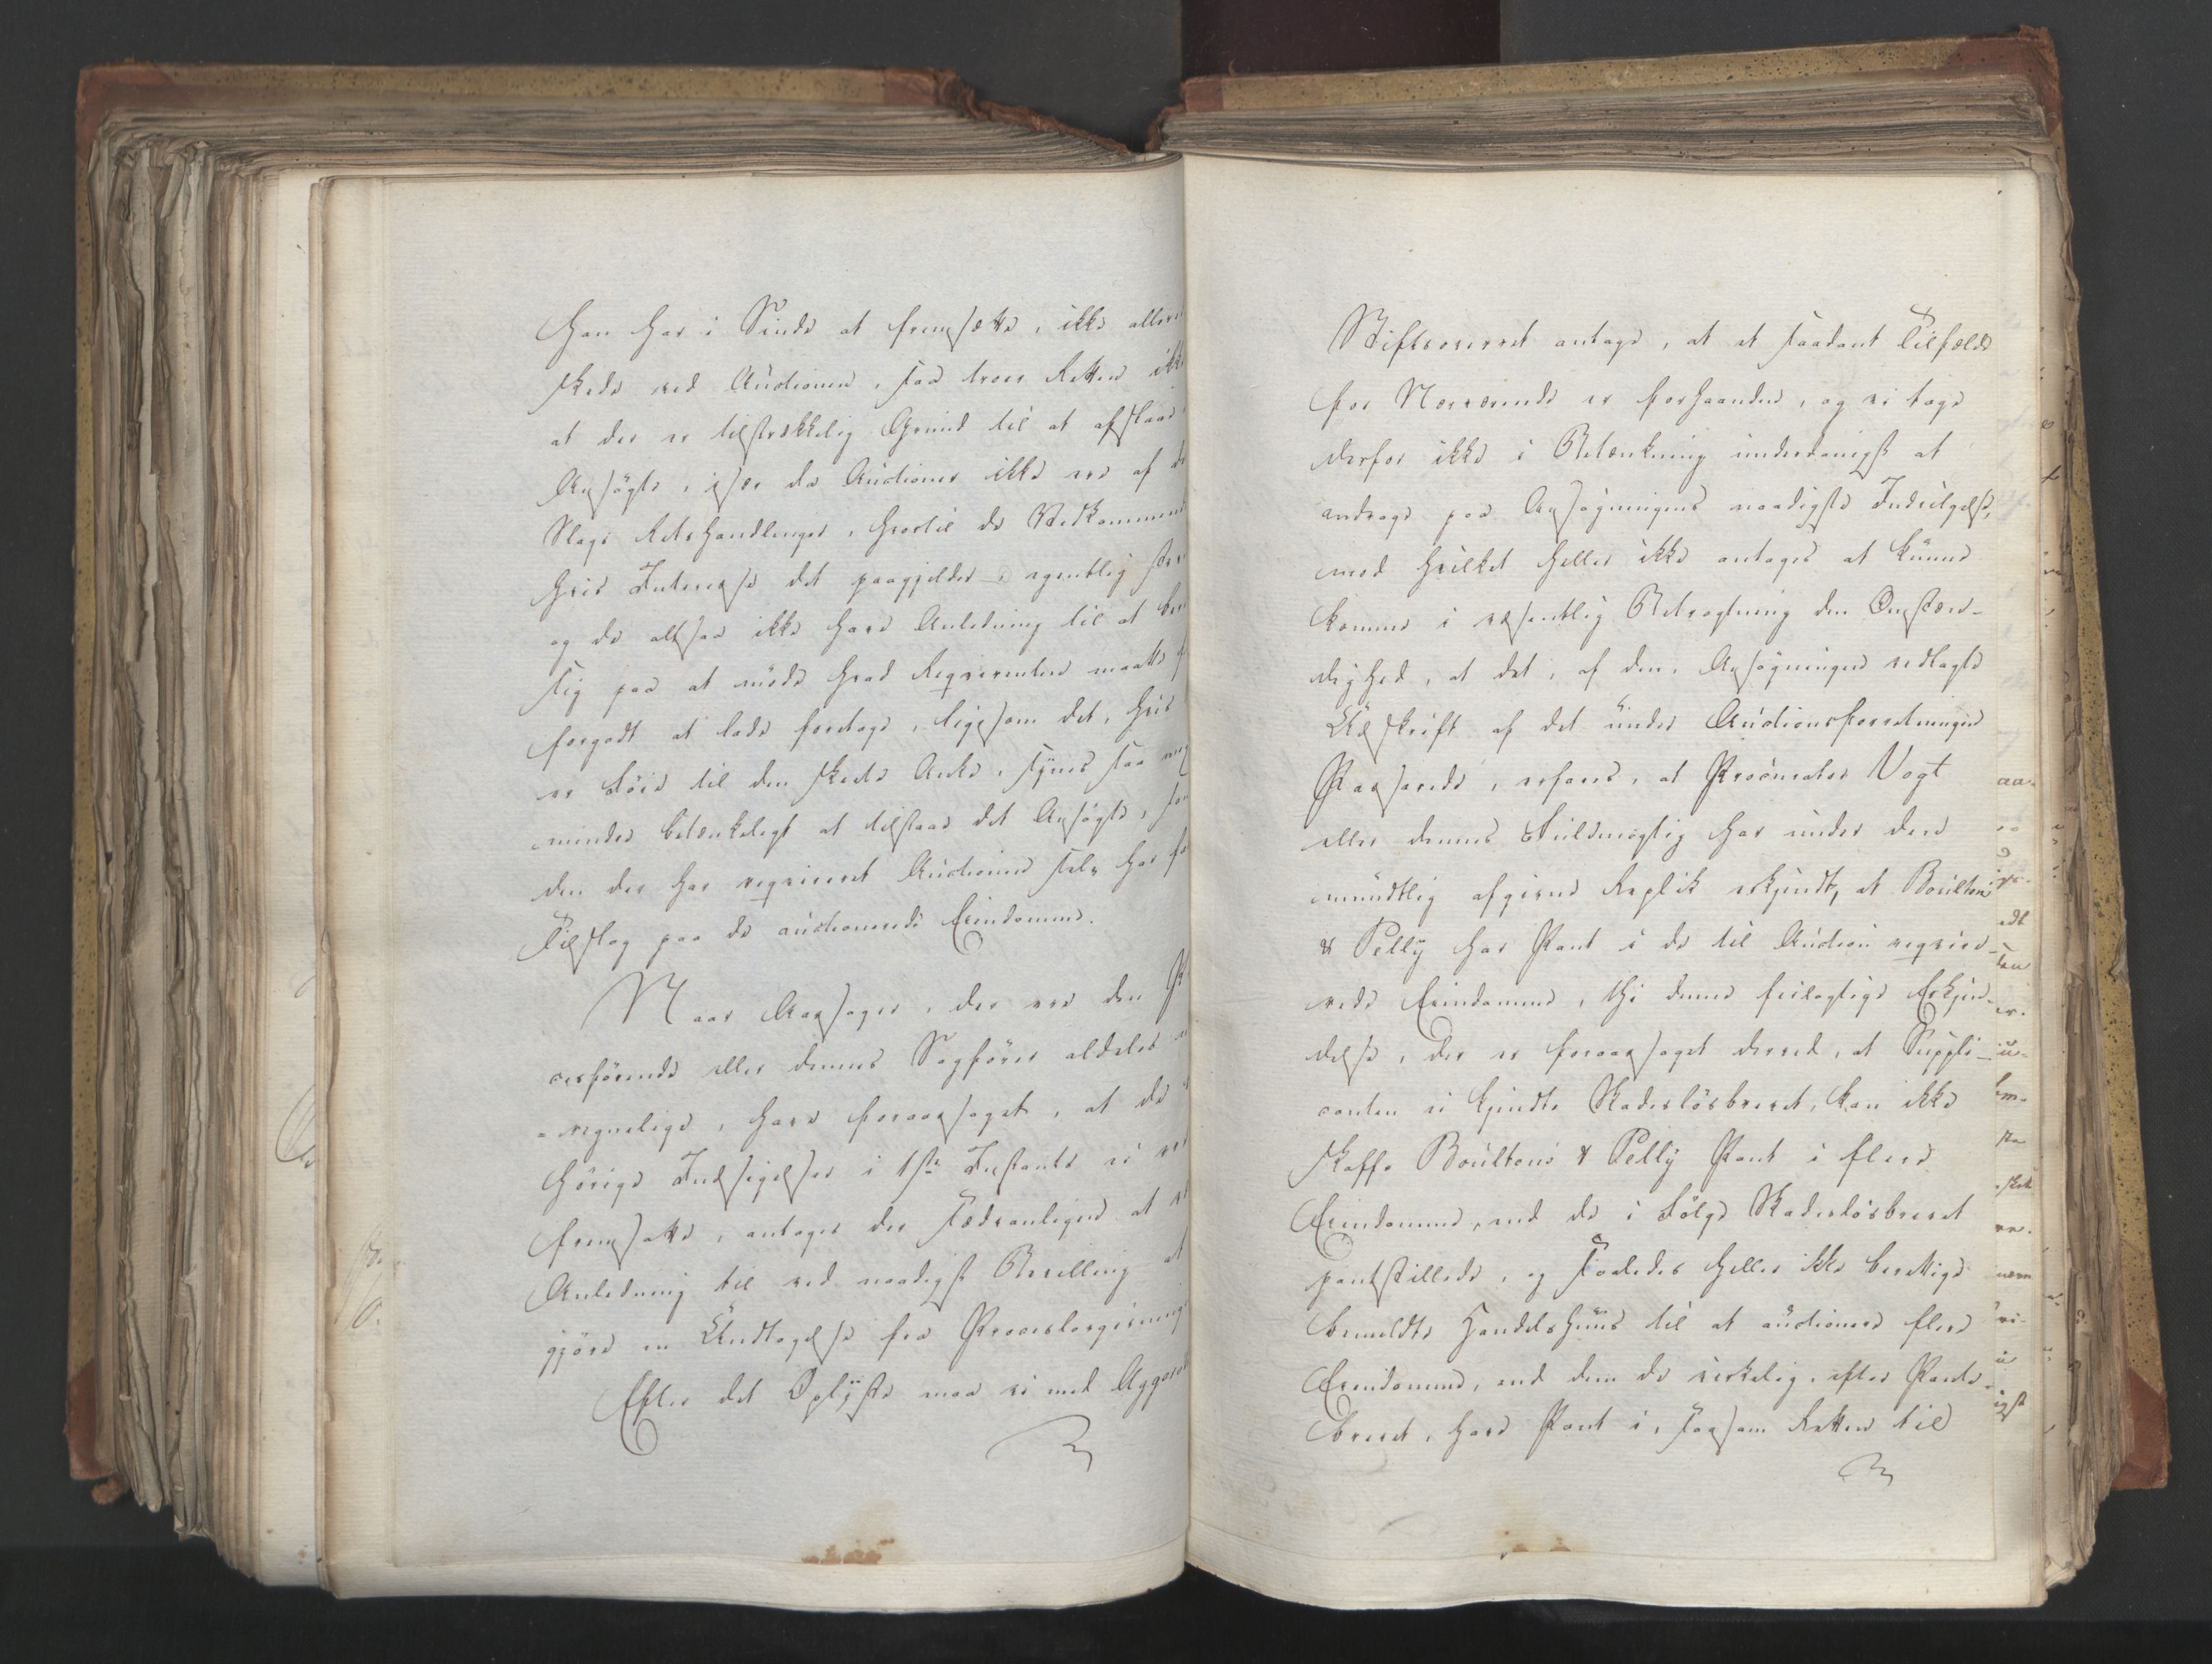 han har i Sinde at fremsætte, ikke aller
skede ved Auctionen, saa troer Retten ikke
at der er tilstrækkelig Grund til at afslaae
Ansögte, især da Auctioner ikke ere af
Slags Retshandlinger, hvortil de Vedkommende
hvis Interesse det paagjelder egentlig
og de altsaa ikke have Anledning til at
sig paa at møde hvad Reqvirenten maatte
forgodt at lade foretage, ligesom det, hvis
er Föie til den skeete Anke, synes saa
mindre betænkeligt at tilstaae det Ansögte,
den der har reqvireret Auctionen selv har
Tilslag paa de auctionerede Eiendomme.
Naar Aarsager, der ere den
overförende eller dennes Sagförer aldeles
regnelige, have foraarsaget, at de
hörige Indsigelser i 1ste Instants ei
fremsatte, antages der sædvanligen at
Anledning til ved naadigst Bevilling at
gjöre en Undtagelse fra Proceslovgivning
Efter det Oplyste maa vi med Agger
Stiftsoverret antage, at et saadant Tilfælde
for Nærværende er forhaanden, og vi tage
derfor ikke i Betænkning underdanigst at
andrage paa Ansøgningens naadigste Indvilgelse,
mod hvilket heller ikke antages at kunne
komme i væsentlig Betragtning den Omstæn-
dighed, at det, af den, Ansøgningen vedlagte
Udskrift af det under Auctionsforretningen
Passerede, erfares, at Procurator Vogt
eller dennes Fuldmægtig har under den
mundtlig afgivne Replik erkjendt, at Boultons
& Pelly har Pant i de til Auction reqvire-
rede Eiendomme, thi denne feilagtige Erkjen-
delse, der er foraarsaget derved, at Suppli-
canten ei kjendte Skadesløsbrevet, kan ikke
skaffe Boultons & Pelly Pant i flere
Eiendomme, end de i Følge Skadesløsbrevet
pantstillede, og saaledes heller ikke berettige
bemeldte Handelshuus til at auctionere flere
Eiendomme, end dem de virkelig, efter Pante-
brevet, have Pant i, saasom Retten til